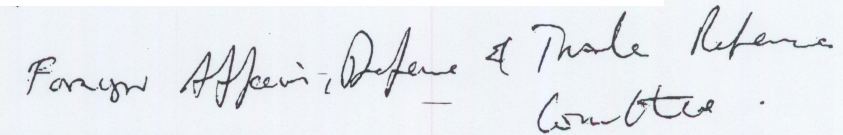 Foreign Affairs, Defence & Trade References
Committee.